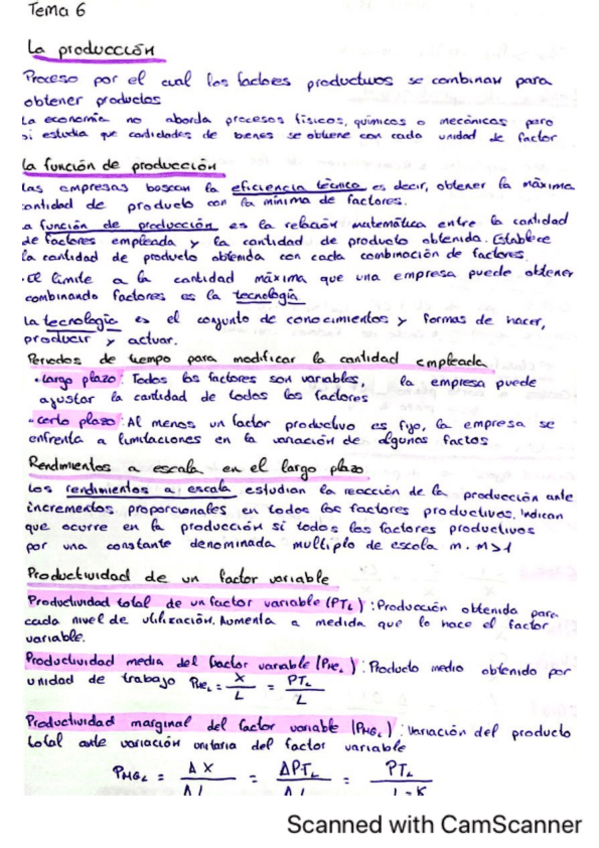 Tema 6
La producción
Proceso por el cual los factores productivos se combinan para
obtener productos
La economía no aborda procesos físicos, químicos o mecánicos pero
si estudia que cantidades de bienes se obtiene con cada unidad de factor
La función de producción
Las empresas buscan la eficiencia técnica es decir, obtener la máxima
cantidad de producto con la mínima de factores.
a función de producción es la relación matemática entre la cantidad
de factores empleada y la cantidad de producto obtenida. Establece
la cantidad de producto obtenida con cada combinación de factores.
· El límite a la cantidad máxima que una empresa puede obtener
combinando factores es la tecnología
La tecnología es el conjunto de conocimientos y formas de hacer,
producir y actuar.
Periodos de tiempo para modificar la cantidad empleada
· Largo plazo: Todos los factores son variables, la empresa puede
ajustar la cantidad de todos los factores
· Corto plazo: Al menos un factor productivo es fijo, la empresa se
enfrenta a limitaciones en la variación de algunos factos
Rendimientos a escala en el largo plazo
Los rendimientos a escala estudian la reacción de la producción ante
incrementos proporcionales en todos los factores productivos. Indican
que ocurre en la producción si todos los factores productivos
por una constante denominada multiplo de escala m. M>1
Productividad de un factor variable
Productividad total de un factor variable (PTL): Producción obtenida para
cada nivel de utilización. Aumenta a medida que lo hace el factor
variable.
Productividad media del factor variable (PMeL): Producto medio obtenido por
unidad de trabajo PMeL = X/L = PTL/L
Productividad marginal del factor variable (PMGL): Variación del producto
total ante variación unitaria del factor variable
PMGL = ΔX/ΔL = ΔPTL/ΔL = PTL
Scanned with CamScanner